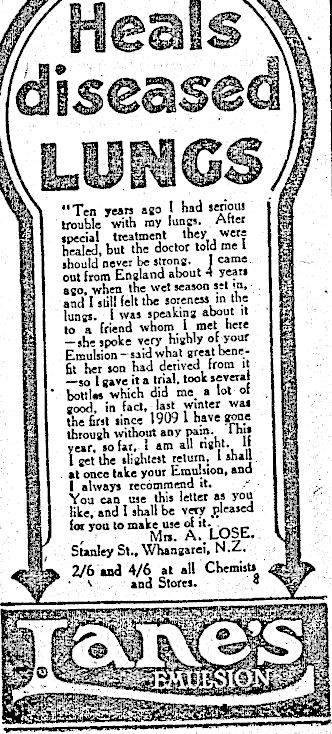 Heals
diseased
LUNGS
"Ten years ago I had serious
trouble with my lungs. After
special treatment they were
healed, but the doctor told me I
should never be strong. I came
out from England about 4 years
ago, when the wet season set in,
and I still felt the soreness in the
lungs. I was speaking about it
to a friend whom I met here
—she spoke very highly of your
Emulsion—said what great bene-
fit her son had derived from it
—so I gave it a trial, took several
bottles which did me a lot of
good, in fact, last winter was
the first since 1909 I have gone
through without any pain. This
year, so far, I am all right. If
I get the slightest return, I shall
at once take your Emulsion, and
I always recommend it.
You can use this letter as you
like, and I shall be very pleased
for you to make use of it."
Mrs. A. LOSE.
Stanley St., Whangarei, N.Z.
2/6 and 4/6 at all Chemists
and Stores. 8
Lane's
EMULSION